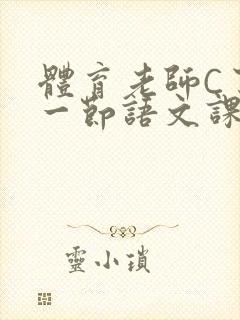 體育老師C
一節語文課
靈小瑣